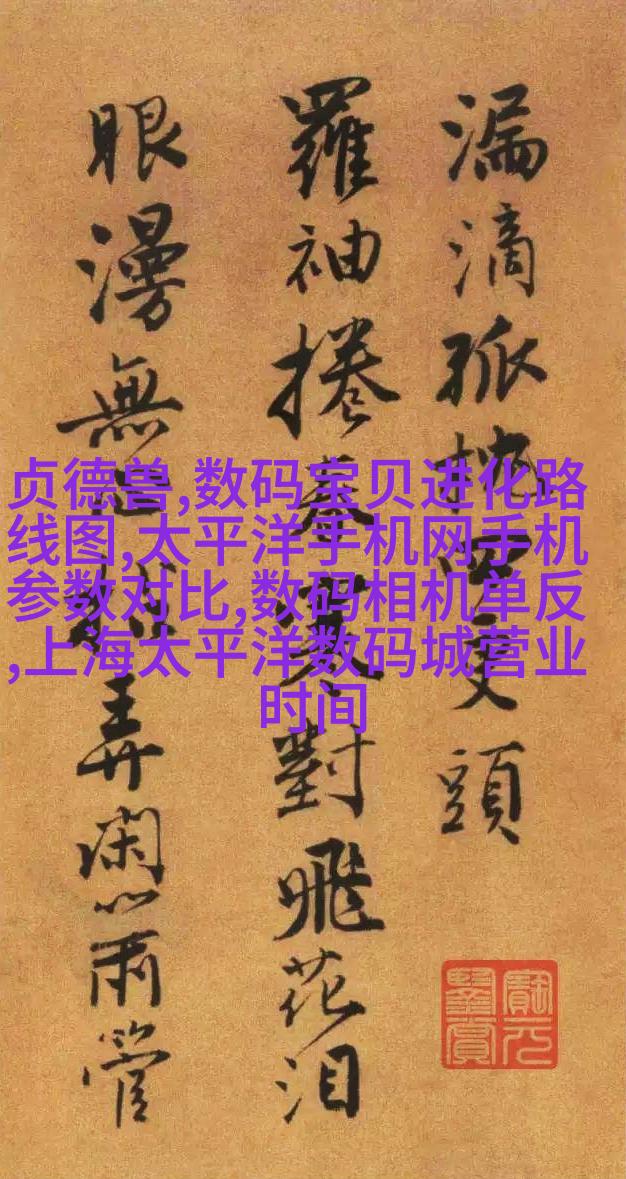 漏滴孤頭
羅袖捲春寒對飛花泪
眼漫無弄閑管
贞德兽,数码宝贝进化路
线图,太平洋手机网手机
参数对比,数码相机单反
,上海太平洋数码城营业
时间